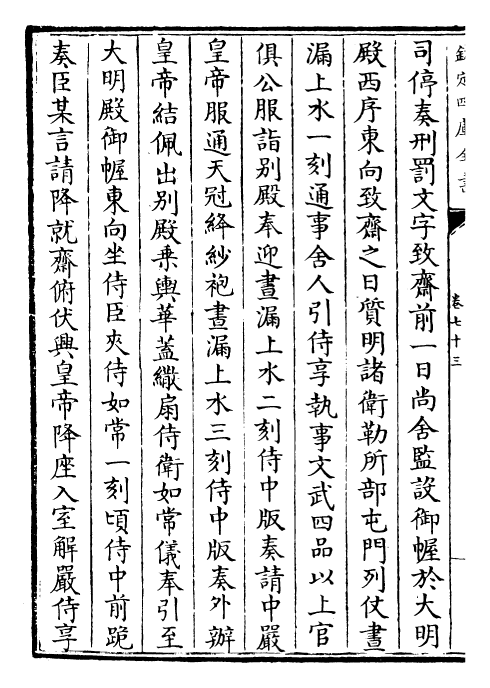 欽定四庫全書
卷七十三
司停奏刑罰文字致齋前一日尚舍監設御幄於大明
殿西序東向致齋之日質明諸衛勒所部屯門列仗晝
漏上水一刻通事舍人引侍享執事文武四品以上官
俱公服詣别殿奉迎晝漏上水二刻侍中版奏請中嚴
皇帝服通天冠絳紗袍晝漏上水三刻侍中版奏外辦
皇帝結佩出别殿乗輿華蓋繖扇侍衛如常儀奉引至
大明殿御幄東向坐侍臣夾侍如常一刻頃侍中前跪
奏臣某言請降就齋俯伏興皇帝降座入室解嚴侍享